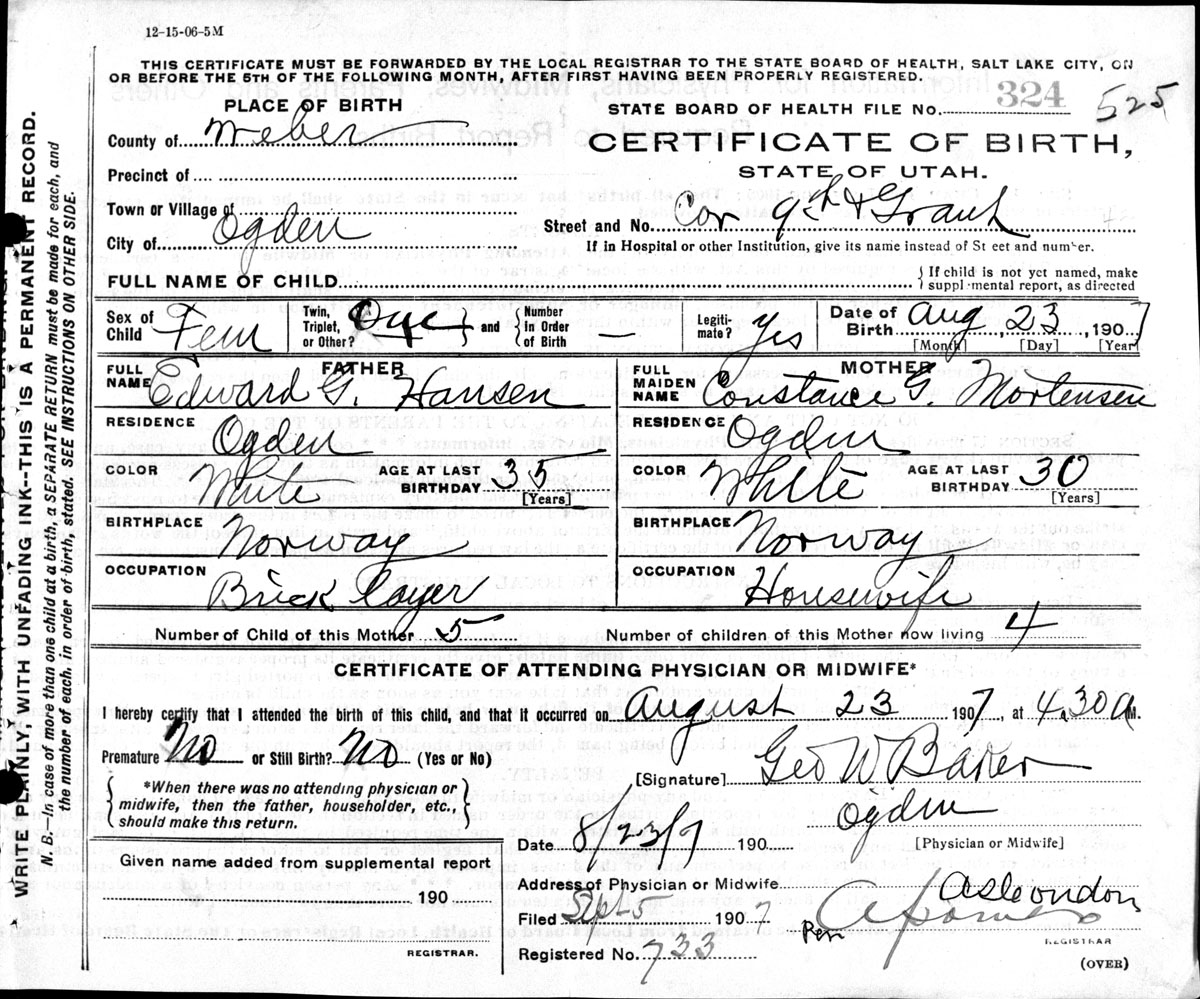 12-15-06-5M
THIS CERTIFICATE MUST BE FORWARDED BY THE LOCAL REGISTRAR TO THE STATE BOARD OF HEALTH, SALT LAKE CITY, ON
OR BEFORE THE 5TH OF THE FOLLOWING MONTH, AFTER FIRST HAVING BEEN PROPERLY REGISTERED.
WRITE PLAINLY, WITH UNFADING INK--THIS IS A PERMANENT RECORD.
N. B.—In case of more than one child at a birth, a SEPARATE RETURN must be made for each, and
the number of each, in order of birth, stated. SEE INSTRUCTIONS ON OTHER SIDE.
PLACE OF BIRTH
County of Weber
Precinct of
Town or Village of
City of Ogden
STATE BOARD OF HEALTH FILE No. 324 525
CERTIFICATE OF BIRTH,
STATE OF UTAH.
Street and No. Cor 9th & Grant
If in Hospital or other Institution, give its name instead of St eet and number.
FULL NAME OF CHILD
If child is not yet named, make
suppl mental report, as directed
Sex of Child Fem
Twin, Triplet, or Other? One and Number In Order of Birth —
Legiti- mate? Yes
Date of Birth Aug 23, 1907
[Month] [Day] [Year]
FATHER
FULL NAME Edward G. Hansen
RESIDENCE Ogden
COLOR White AGE AT LAST BIRTHDAY 35
[Years]
BIRTHPLACE Norway
OCCUPATION Brick layer
MOTHER
FULL MAIDEN NAME Constance G. Mortensen
RESIDENCE Ogden
COLOR White AGE AT LAST BIRTHDAY 30
[Years]
BIRTHPLACE Norway
OCCUPATION Housewife
Number of Child of this Mother 5 Number of children of this Mother now living 4
CERTIFICATE OF ATTENDING PHYSICIAN OR MIDWIFE*
I hereby certify that I attended the birth of this child, and that it occurred on August 23 1907, at 4.30 A M.
Premature No or Still Birth? No (Yes or No)
*When there was no attending physician or
midwife, then the father, householder, etc.,
should make this return.
Given name added from supplemental report
190
REGISTRAR.
[Signature] Geo W Baker
Ogden
Date 8/23/7 190 [Physician or Midwife]
Address of Physician or Midwife
Filed Sept 5 1907
Registered No. 733
Per
REGISTRAR
(OVER)